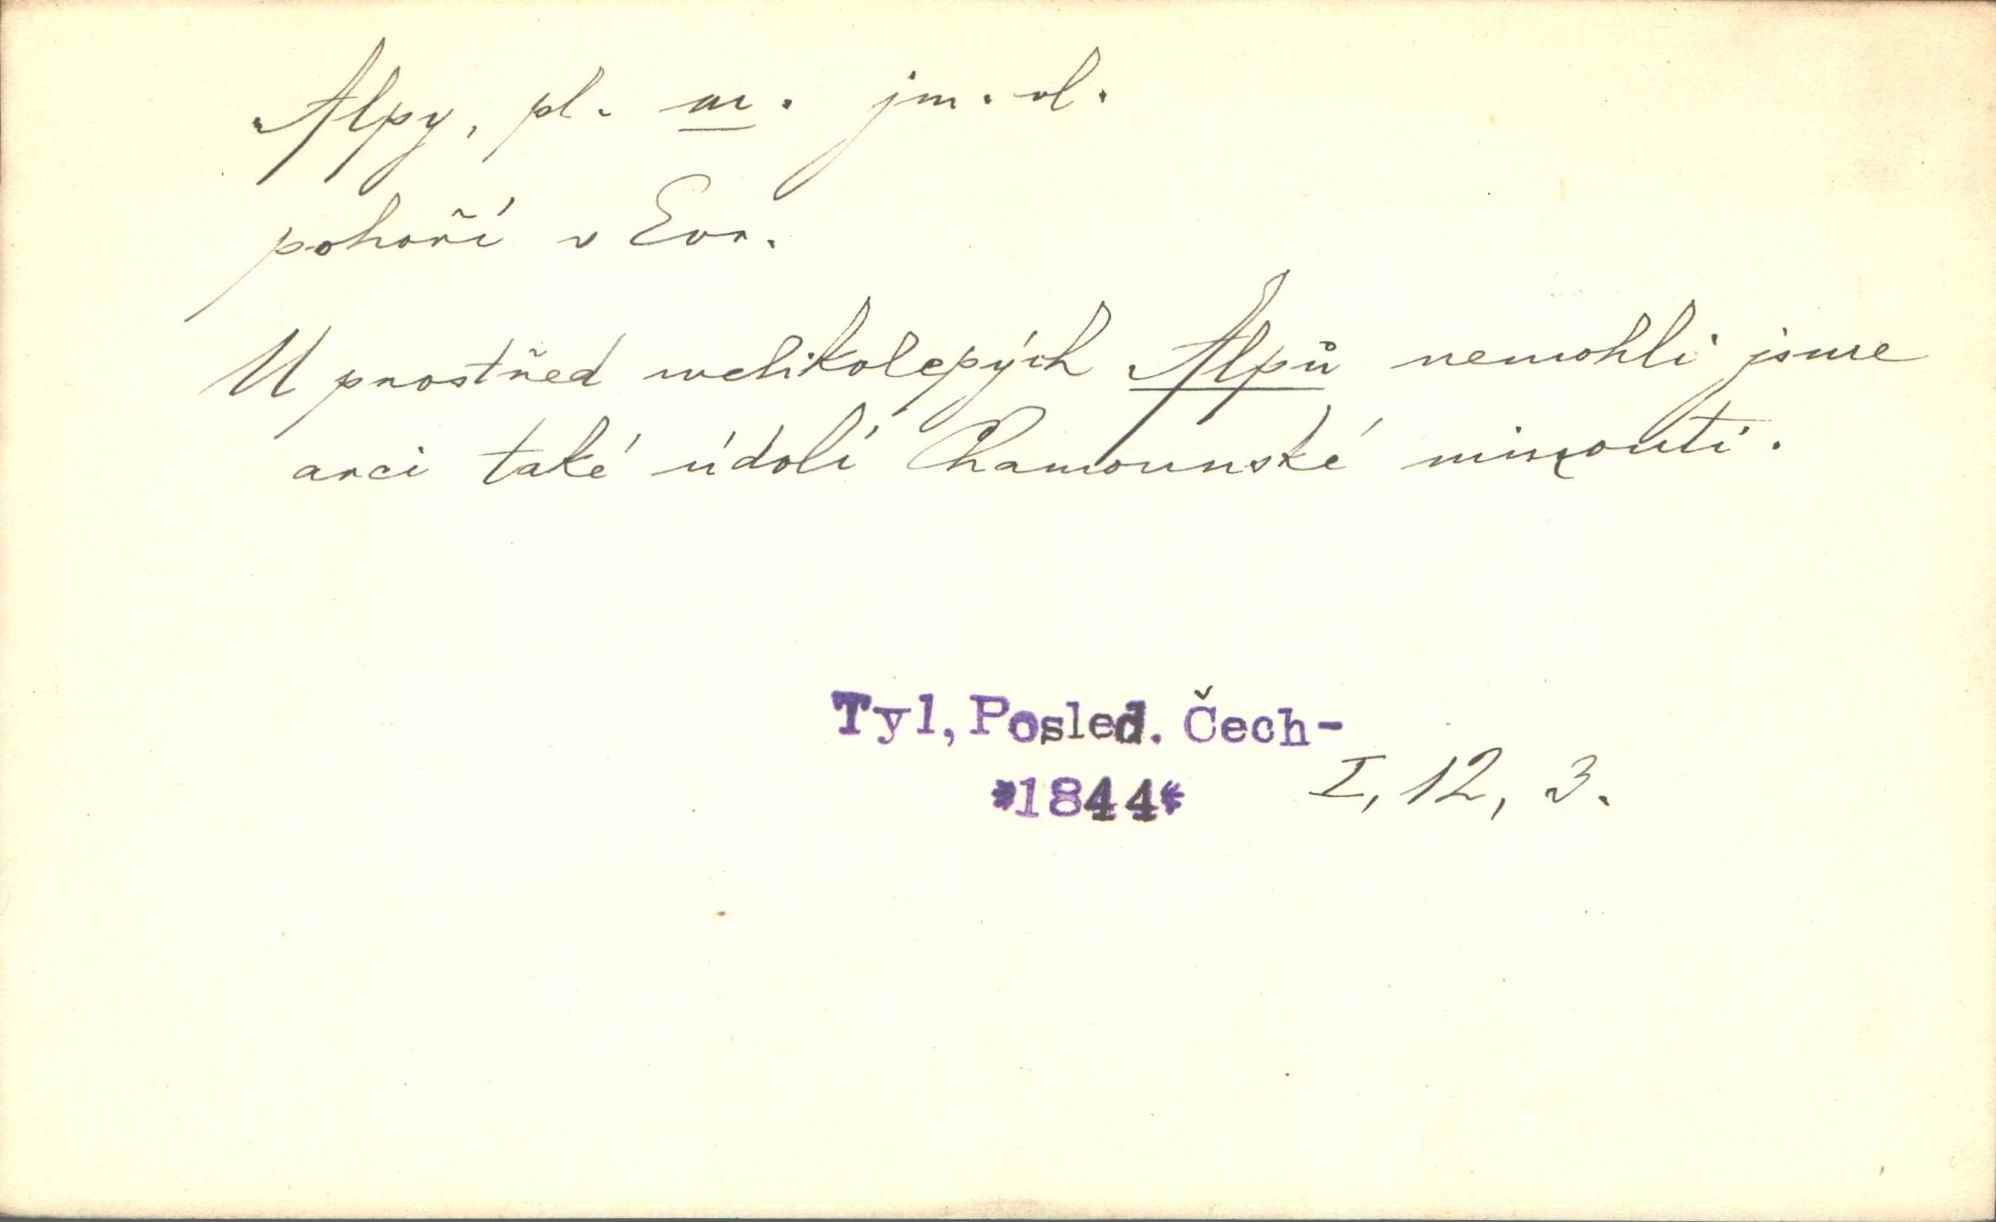 Alpy, pl. m. jm. vl.
pohoří v Evr.
U prostřed welikolepých Alpů nemohli jsme
arci také údolí Chamounské minouti.
Tyl, Posled. Čech-
*1844* I, 12, 3.